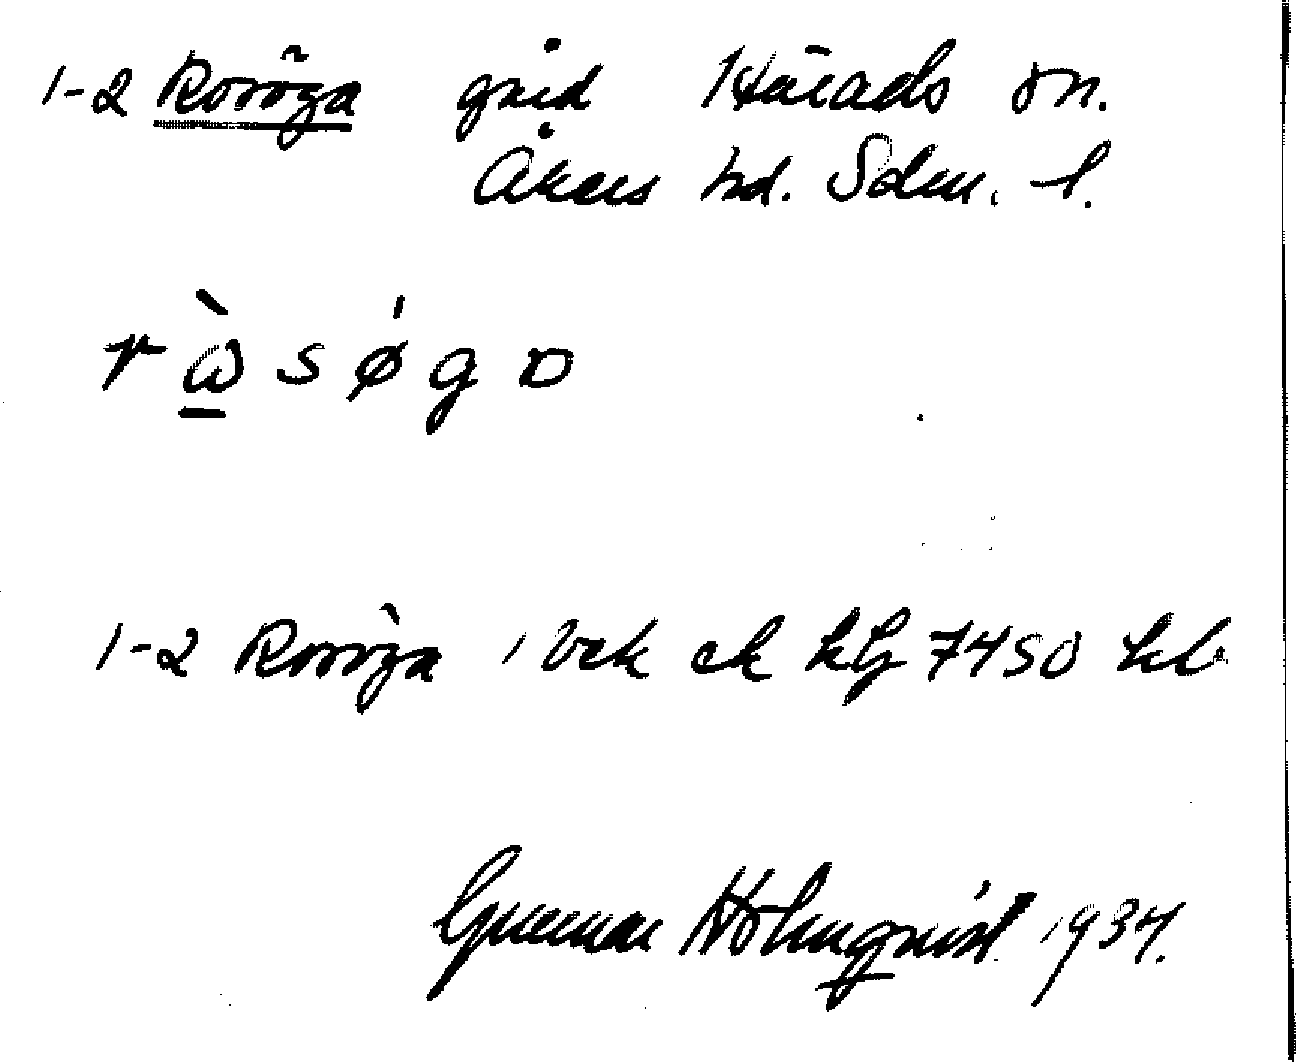 1-2 Rosöga gård Härads sn.
Åkers hd. Sdm. l.
r ὼ s ø g ɒ
1-2 Rosöga 1 Vek ek hg 7450 kb
Gunnar Holmqvist 1934.